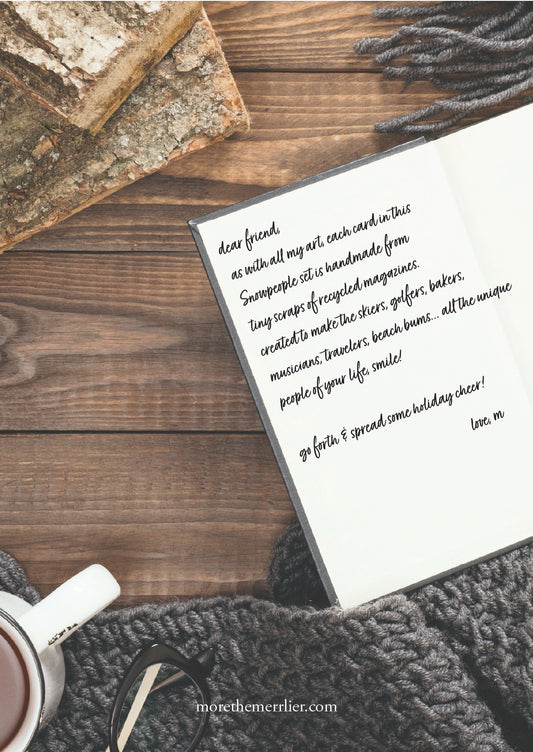 dear friend,
as with all my art, each card in this
Snowpeople set is handmade from
tiny scraps of recycled magazines.
created to make the skiers, golfers, bakers,
musicians, travelers, beach bums... all the unique
people of your life, smile!
go forth & spread some holiday cheer!
love, m
morethemerrlier.com